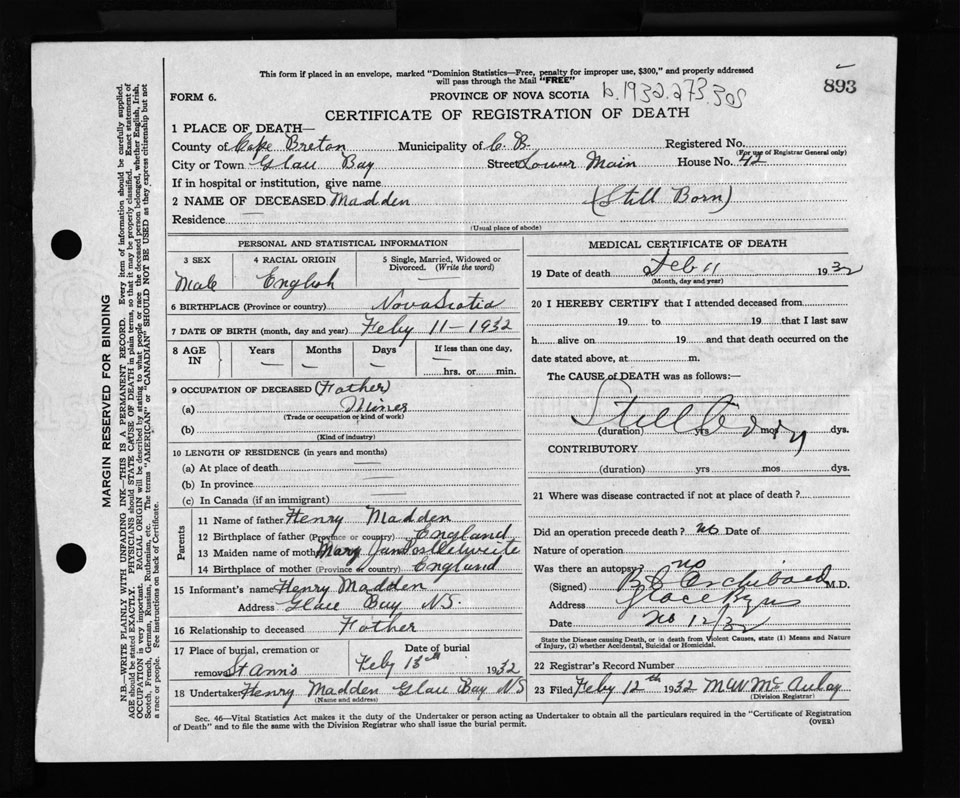 This form if placed in an envelope, marked "Dominion Statistics—Free, penalty for improper use, $300," and properly addressed
will pass through the Mail "FREE"
893
FORM 6.
PROVINCE OF NOVA SCOTIA b.1932.273.305
CERTIFICATE OF REGISTRATION OF DEATH
1 PLACE OF DEATH—
County of Cape Breton Municipality of C.B. Registered No.
(For use of Registrar General only)
City or Town Glace Bay Street Lower Main House No. 42
If in hospital or institution, give name
2 NAME OF DECEASED Madden (Still Born)
Residence —
(Usual place of abode)
PERSONAL AND STATISTICAL INFORMATION
3 SEX 4 RACIAL ORIGIN 5 Single, Married, Widowed or Divorced. (Write the word)
Male English —
6 BIRTHPLACE (Province or country) Nova Scotia
7 DATE OF BIRTH (month, day and year) Feby 11 - 1932
8 AGE IN Years Months Days If less than one day,
— — — —
hrs. or min.
9 OCCUPATION OF DECEASED (Father)
(a) Miner
(Trade or occupation or kind of work)
(b)
(Kind of industry)
10 LENGTH OF RESIDENCE (in years and months)
(a) At place of death —
(b) In province —
(c) In Canada (if an immigrant) —
Parents
11 Name of father Henry Madden
12 Birthplace of father (Province or country) England
13 Maiden name of mother Mary Jane
14 Birthplace of mother (Province or country) England
15 Informant's name Henry Madden
Address Glace Bay N.S.
16 Relationship to deceased Father
17 Place of burial, cremation or removal St Ann's Date of burial Feby 13th 1932
18 Undertaker Henry Madden Glace Bay NS
(Name and address)
MEDICAL CERTIFICATE OF DEATH
19 Date of death Feb 11 1932
(Month, day and year)
20 I HEREBY CERTIFY that I attended deceased from
19 to 19 that I last saw
h alive on 19 and that death occurred on the
date stated above, at m.
The CAUSE of DEATH was as follows:—
Still Born
(duration) yrs mos dys.
CONTRIBUTORY
(duration) yrs mos dys.
21 Where was disease contracted if not at place of death?
Did an operation precede death? no Date of
Nature of operation
Was there an autopsy? no
(Signed) Archibald M.D.
Address Glace Bay
Date 12/32
State the Disease causing Death, or in death from Violent Causes, state (1) Means and Nature
of Injury, (2) whether Accidental, Suicidal or Homicidal.
22 Registrar's Record Number
23 Filed Feby 12th 1932 McAulay
(Division Registrar)
Sec. 46—Vital Statistics Act makes it the duty of the Undertaker or person acting as Undertaker to obtain all the particulars required in the "Certificate of Registration
of Death" and to file the same with the Division Registrar who shall issue the burial permit.
(OVER)
MARGIN RESERVED FOR BINDING
N.B.—WRITE PLAINLY WITH UNFADING INK—THIS IS A PERMANENT RECORD. Every item of information should be carefully supplied.
AGE should be stated EXACTLY. PHYSICIANS should STATE CAUSE OF DEATH in plain terms, so that it may be properly classified. Exact statement of
OCCUPATION is very important. RACIAL ORIGIN will be described by stating to what people or race the deceased person belonged, whether English, Irish,
Scotch, French, German, Russian, Ruthenian, etc. The terms "AMERICAN" or "CANADIAN" SHOULD NOT BE USED as they express citizenship but not
a race or people. Fee instructions on back of Certificate.